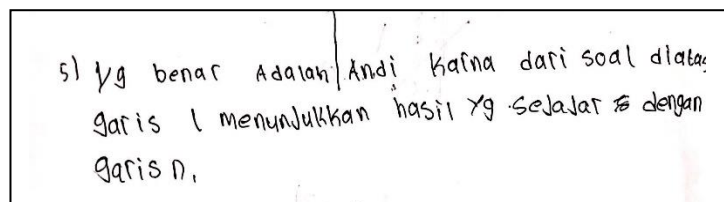 5) Yg benar Adalah Andi Karna dari soal diatas
garis l menunjukkan hasil Yg sejajar dengan
garis n.